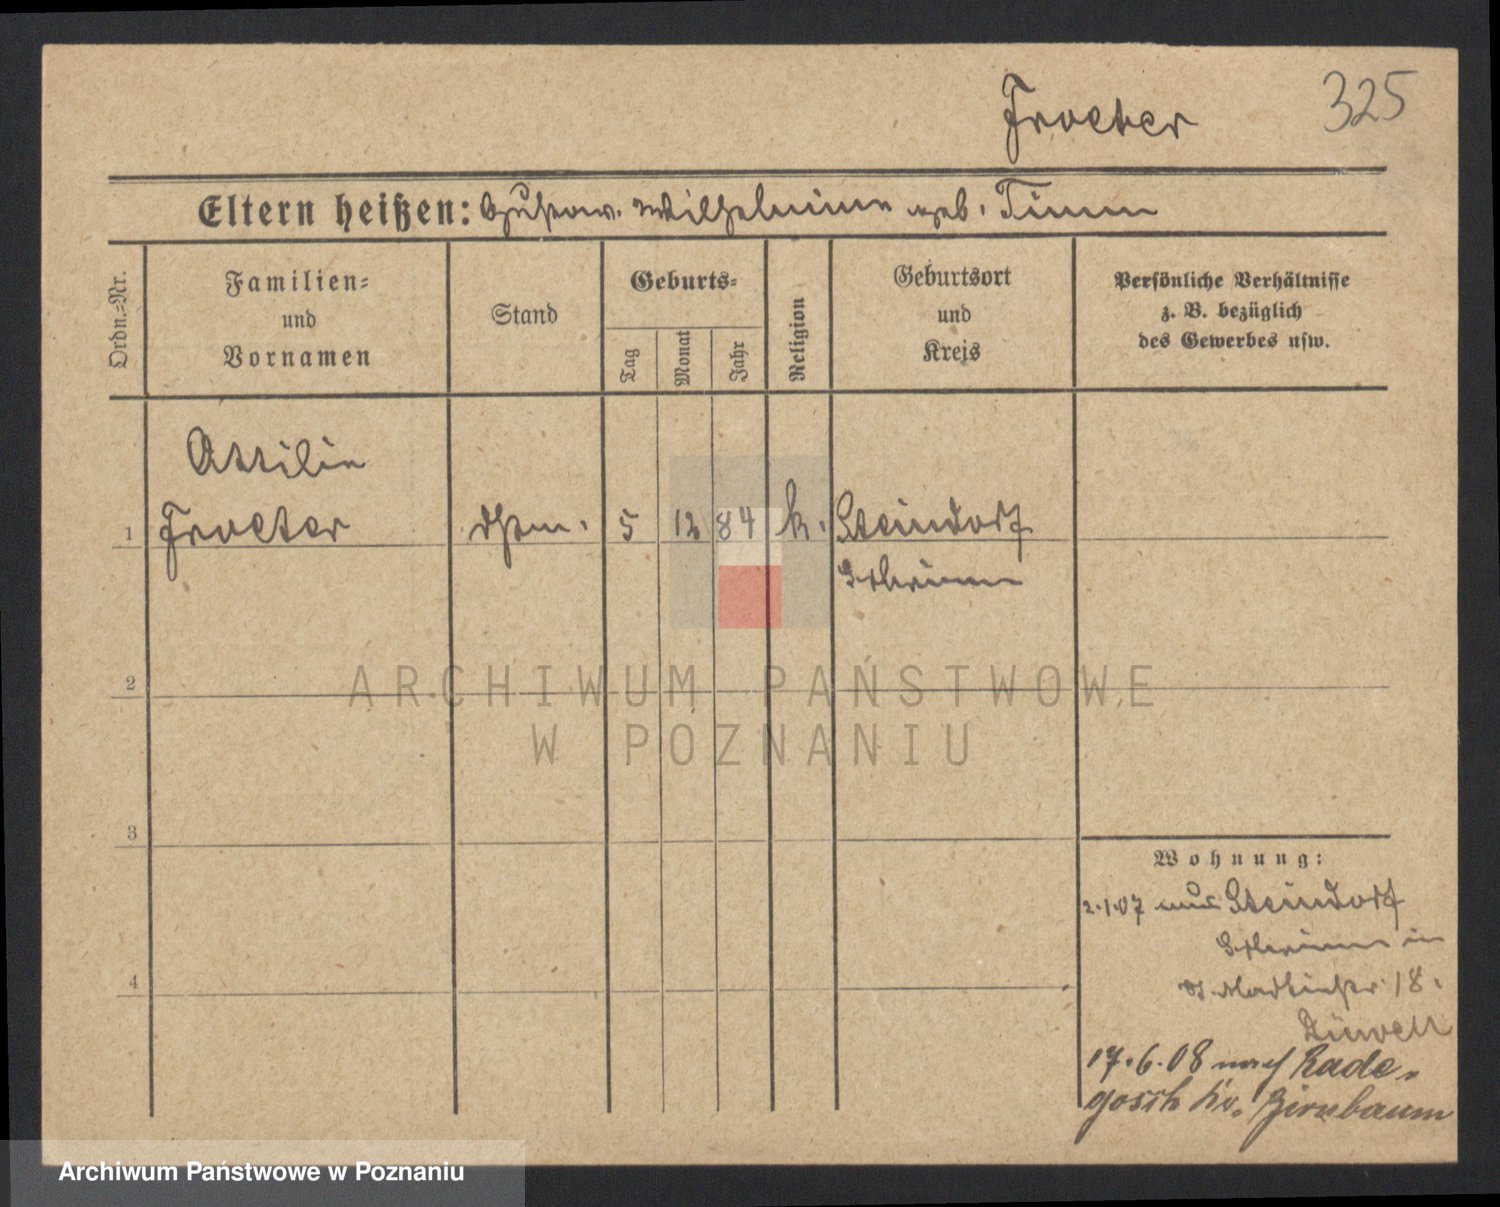 Froeter 325
Eltern heißen: Gustav. Wilhelmine geb. Timm
Ordn.=Nr.
Familien=
und
Vornamen
Stand
Geburts=
Tag
Monat
Jahr
Religion
Geburtsort
und
Kreis
Persönliche Verhältnisse
z. B. bezüglich
des Gewerbes usw.
Ottilie
1 Froeter 5 12 84 k. Steindorf
2
3
4
Wohnung:
2.1.07 aus Steindorf
in
18.
17.6.08 nach Rade-
gosch Kr. Birnbaum
ARCHIWUM PAŃSTWOWE
W POZNANIU
Archiwum Państwowe w Poznaniu